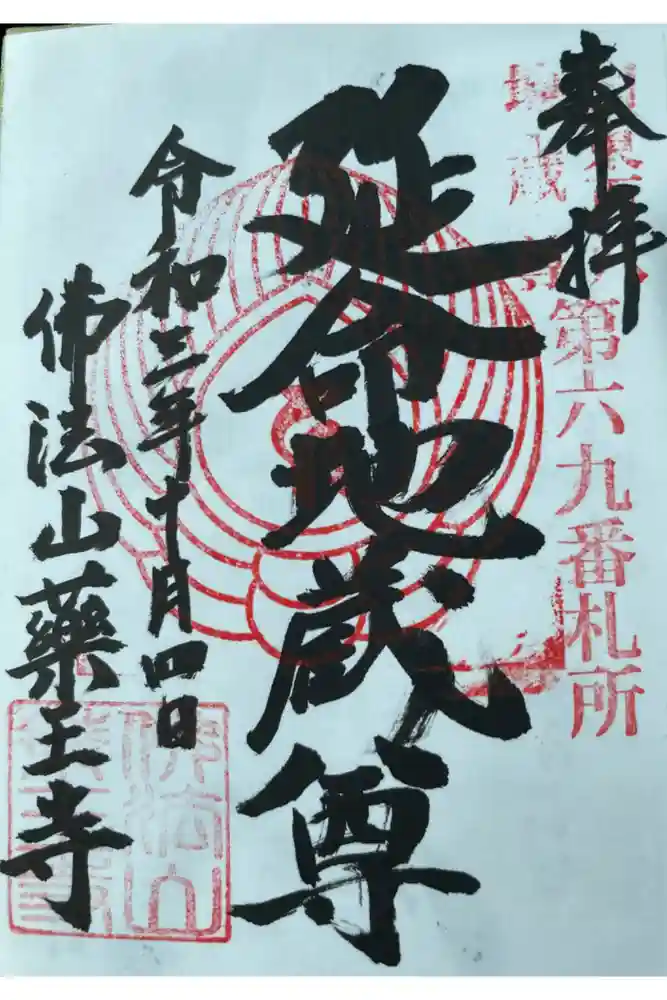 奉拝
第六九番札所
延命地蔵尊
令和三年十月四日
佛法山薬王寺